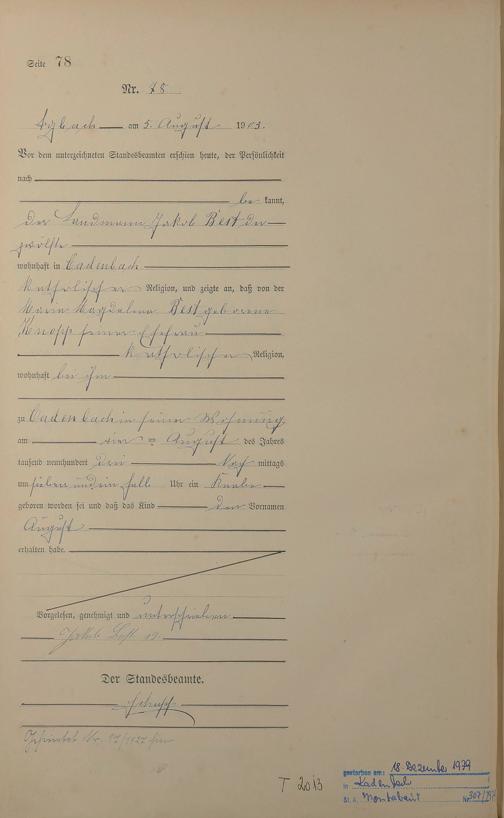 Seite 78
Nr. 78
am 5. August 1903.
Vor dem unterzeichneten Standesbeamten erschien heute, der Persönlichkeit
nach
be kannt,
der Landmann Jakob Best der
zwölfte
wohnhaft in Cadenbach
katholischer Religion, und zeigte an, daß von der
Maria Magdalena Best geborene
Knopp seiner Ehefrau
katholischer Religion,
wohnhaft bei ihm
zu Cadenbach in seiner Wohnung,
am August des Jahres
tausend neunhundert drei Nach mittags
um sieben und ein halb Uhr ein Knabe
geboren worden sei und daß das Kind den Vornamen
August
erhalten habe.
Vorgelesen, genehmigt und unterschrieben
Jakob Best 12.
Der Standesbeamte.
T 2013
gestorben am: 18. Dezember 1979
in Kadenbach
St. A. Montabaur Nr. 307/